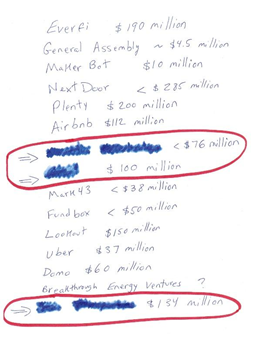 Everfi $190 million
General Assembly ~ $4.5 million
Maker Bot $10 million
Next Door < $285 million
Plenty $200 million
Airbnb $112 million
⇒ < $76 million
⇒ $100 million
Mark43 < $38 million
Fundbox < $50 million
Lookout $150 million
Uber $37 million
Domo $60 million
Breakthrough Energy Ventures ?
⇒ $134 million